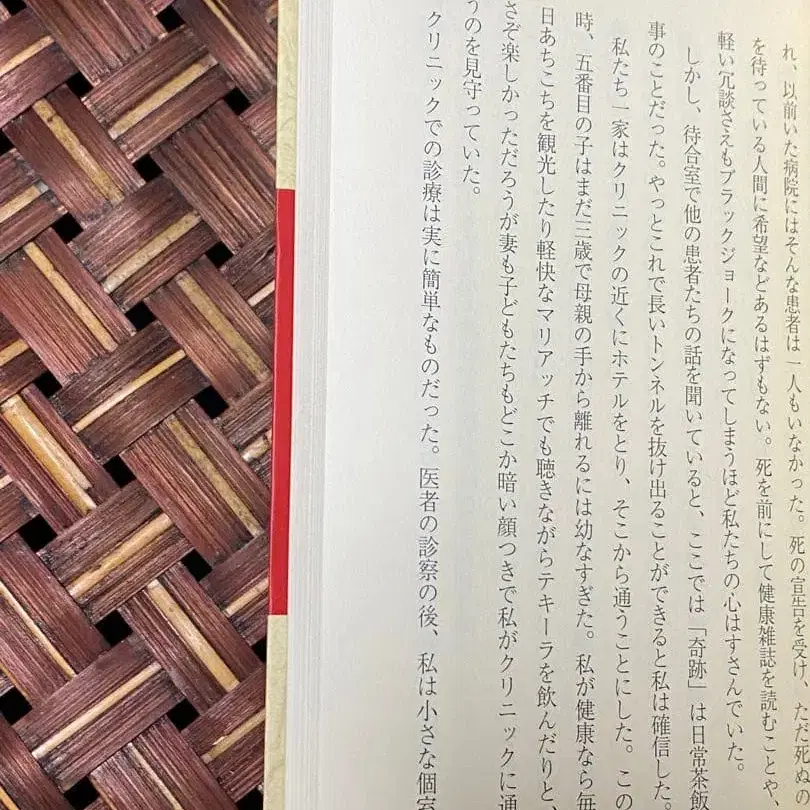 れ、以前いた病院にはそんな患者は一人もいなかった。死の宣告を受け、ただ死ぬの
を待っている人間に希望などあるはずもない。死を前にして健康雑誌を読むことや、
軽い冗談さえもブラックジョークになってしまうほど私たちの心はすさんでいた。
しかし、待合室で他の患者たちの話を聞いていると、ここでは「奇跡」は日常茶飯
事のことだった。やっとこれで長いトンネルを抜け出ることができると私は確信した。
私たち一家はクリニックの近くにホテルをとり、そこから通うことにした。この
時、五番目の子はまだ三歳で母親の手から離れるには幼なすぎた。私が健康なら毎
日あちこちを観光したり軽快なマリアッチでも聴きながらテキーラを飲んだりと、
さぞ楽しかっただろうが妻も子どもたちもどこか暗い顔つきで私がクリニックに通
うのを見守っていた。
クリニックでの診療は実に簡単なものだった。医者の診察の後、私は小さな個室